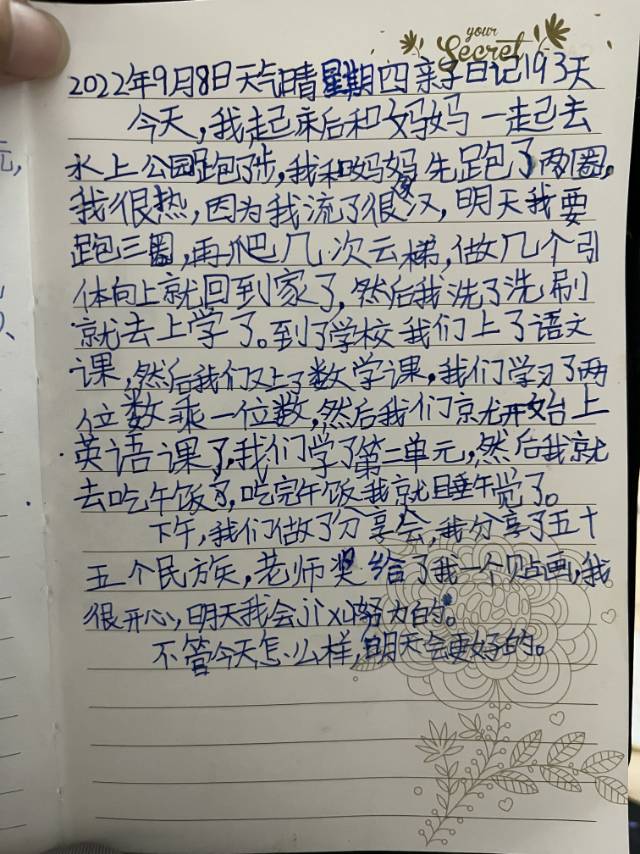 your
Secret
2022年9月8日天气晴星期四亲子日记193天
今天,我起床后和妈妈一起去
水上公园跑了步,我和妈妈先跑了两圈,
我很热,因为我流了很多汉,明天我要
跑三圈,再爬几次云梯,做几个引
体向上就回到家了,然后我洗了洗刷
就去上学了。到了学校我们上了语文
课,然后我们又上了数学课,我们学习了两
位数乘一位数,然后我们就开始上
英语课了,我们学了第二单元,然后我就
去吃午饭了,吃完午饭我就睡午觉了。
下午,我们做了分享会,我分享了五十
五个民族,老师奖给了我一个贴画,我
很开心,明天我会jì xù努力的。
不管今天怎么样,明天会更好的。
元,